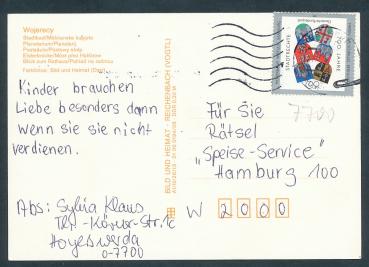 Wojerecy
Stadtbad/Měšćanska kupjele
Planetarium/Planetarij
Postsäule/Póstowy stołp
Elsterbrücke/Móst přez Halštrow
Blick zum Rathaus/Pohlad na radnicu
Farbfotos: Bild und Heimat
BILD UND HEIMAT · REICHENBACH (VOGTL)
700 JAHRE
STADTRECHTE
100
Kinder brauchen
Liebe besonders dann
Wenn sie sie nicht
verdienen.
7700
Für Sie
Rätsel
„Speise-Service"
Hamburg 100
W 2000
Abs: Sylvia Klaus
Th.-Körner-Str. 1c
Hoyerswerda
O-7700